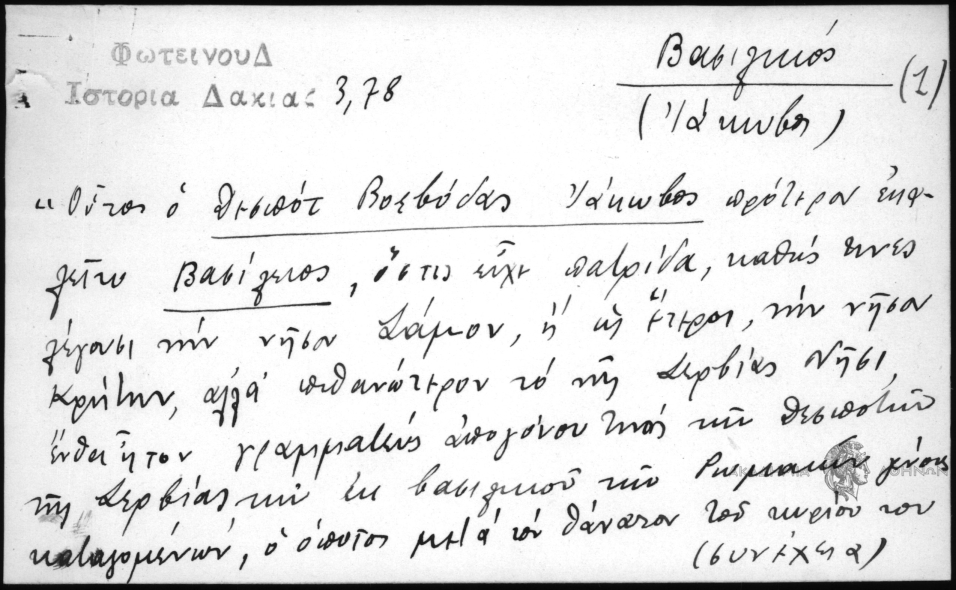 Φωτεινου Δ
Ιστορια Δακιας 3,78
Βασιλικός
(Ἰάκωβος)
(1)
"Οὗτος ὁ Δεσπότ Βοεβόδας Ἰάκωβος πρότερον ἐκα-
λεῖτο Βασίλειος, ὅστις εἶχε πατρίδα, καθώς τινες
λέγουσι τήν νῆσον Σάμον, ἤ ὡς ἕτεροι, τήν νῆσον
Κρήτην, ἀλλά πιθανώτερον τό τῆς Σερβίας Νῆσι,
ἔνθα ἦτον γραμματεύς ἀπογόνου τινός τῶν Δεσποτῶν
τῆς Σερβίας τῶν ἐκ βασιλικοῦ τῶν Ρωμαίων γένους
καταγομένων, ὁ ὁποῖος μετά τόν θάνατον τοῦ κυρίου του
(συνέχεια)